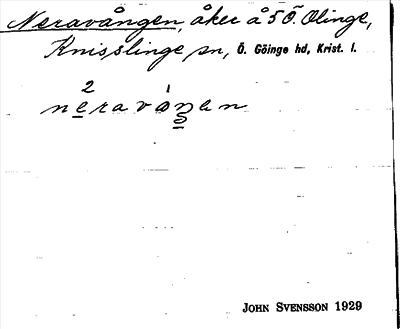 Neravången, åker å 5 Ö. Olinge,
Knisslinge sn, Ö. Göinge hd, Krist. l.
2 1
neravåŋen
JOHN SVENSSON 1929